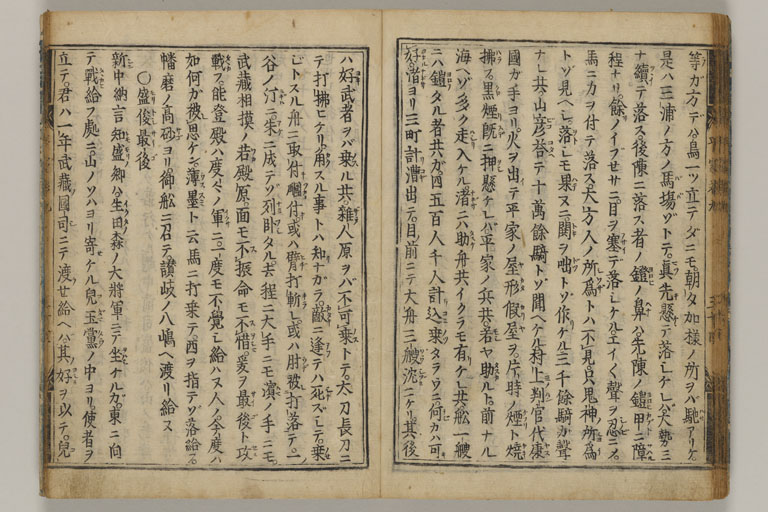 等ガ方デハ鳥一ツ立テダニモ朝夕加様ノ所ヲバ馳アリケ
是ハ三浦ノ方ノ馬場ゾトテ真先懸テ落シケレバ大勢ミ
ナ續テ落ス後陳ニ落ス者ノ鎧ノ鼻ハ先陳ノ鎧甲ニ障ル
程ナリ餘ノイブセサニ目ヲ塞テ落シケルエイ〱聲ヲ忍ニシテ
馬ニ力ヲ付テ落ス大方人ノ所爲トハ不見只鬼神ノ所爲
トゾ見ヘシ落シモ果ヌニ閧ヲ咄トゾ作ケル三千餘騎ガ聲
ナレ共山彦答テ十萬餘騎トゾ聞ヘケル村上判官代康
國ガ手ヨリ火ヲ出テ平家ノ屋形假屋ヲ片時ノ煙ト焼
拂フ黒煙既ニ押懸ケレバ平家ノ兵共若ヤ助ルト前ナル
海ヘゾ多ク走入ケル渚ニハ助舟共イクラモ有ケレ共舩一艘
ニハ鎧タル者共ガ四五百人千人計込乗タラウニ何カハ可
好渚ヨリ三町計漕出テ目前ニテ大舟三艘沈ニケリ其後
ハ好武者ヲバ乗ル共雑人原ヲバ不可乗トテ太刀長刀ニ
テ打拂ヒケリ角スル事トハ知ナガラ敵ニ逢テハ死ズシテ乗
ジトスル舟ニ取付付或ハ臂打斬レ或ハ肘被打落テ一
谷ノ汀ニ朱ニ成テゾ列臥タル去程ニ大手ニモ濱ノ手ニモ
武藏相摸ノ若殿原面モ不振命モ不惜爰ヲ最後ト攻
戰フ能登殿ハ度々ノ軍ニ一度モ不覺シ給ハヌ人ノ今度ハ
如何カ被思ケン薄墨ト云馬ニ打乗テ西ヲ指テゾ落給フ
幡磨ノ高砂ヨリ御舩ニ召テ讃岐ノ八嶋ヘ渡リ給ス
○盛俊最後
新中納言知盛卿ハ生田森ノ大將軍ニテ坐ケルガ東ニ向
テ戰給フ處ニ山ノソハヨリ寄ケル兒玉黨ノ中ヨリ使者ヲ
立テ君ハ一年武藏國司ニテ渡セ給ヘバ其好ヲ以テ兒